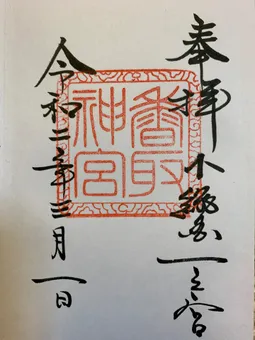 奉拝 下総国一之宮
香取神宮
令和二年三月一日